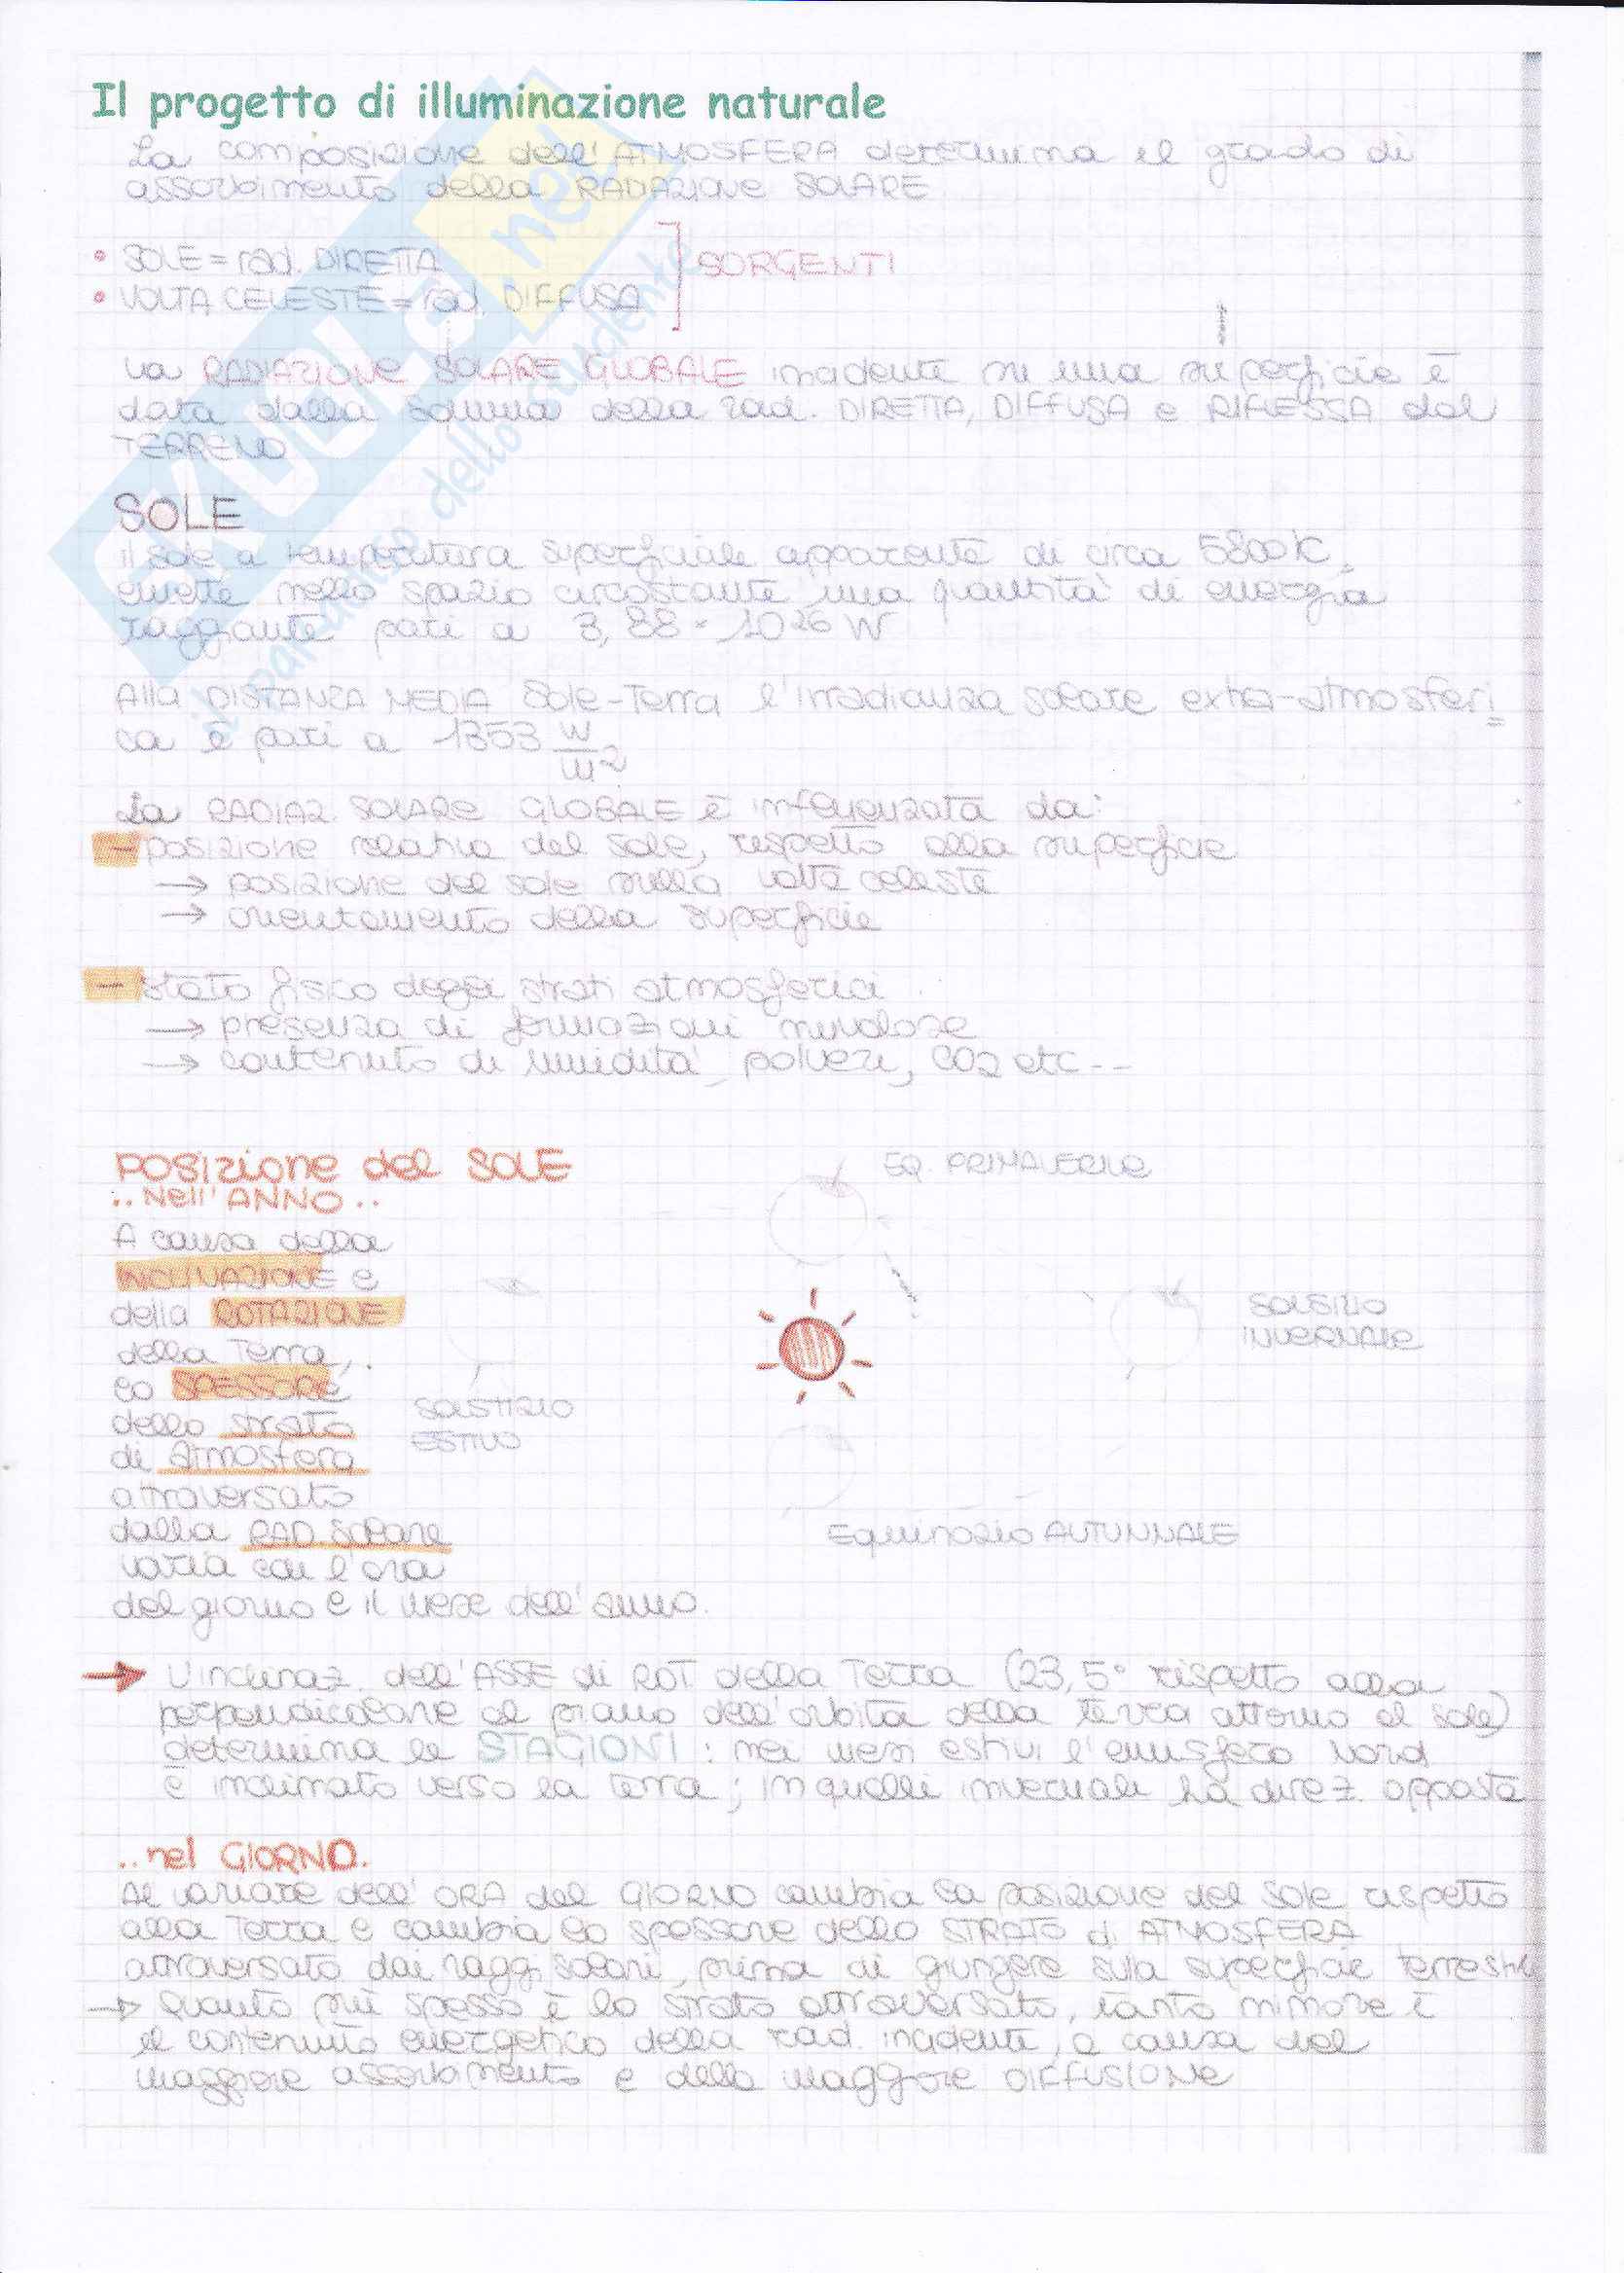 Il progetto di illuminazione naturale
La composizione dell'ATMOSFERA determina il grado di
assorbimento della RADIAZIONE SOLARE
• SOLE = rad. DIRETTA
• VOLTA CELESTE = rad. DIFFUSA
SORGENTI
La RADIAZIONE SOLARE GLOBALE incidente su una superficie è
data dalla somma della rad. DIRETTA, DIFFUSA e RIFLESSA dal
TERRENO
SOLE
Il sole a temperatura superficiale apparente di circa 5800 K,
emette nello spazio circostante una quantità di energia
raggiante pari a 3,88 × 10²⁶ W
Alla DISTANZA MEDIA Sole-Terra l'irradianza solare extra-atmosferi
ca è pari a 1353 W/m²
La RADIAZ. SOLARE GLOBALE è influenzata da:
- posizione relativa del sole, rispetto alla superficie
→ posizione del sole nella volta celeste
→ orientamento della superficie
- stato fisico degli strati atmosferici
→ presenza di formazioni nuvolose
→ contenuto di umidità, polveri, CO2 etc--
POSIZIONE del SOLE
..Nell'ANNO..
EQ. PRIMAVERILE
A causa della
INCLINAZIONE e
della ROTAZIONE
della Terra,
lo SPESSORE
dello strato
di atmosfera
attraversato
dalla RAD. Solare
varia con l'ora
del giorno e il mese dell'anno.
SOLSTIZIO
ESTIVO
SOLSIZIO
INVERNALE
Equinozio AUTUNNALE
→ L'inclinaz. dell'ASSE di ROT della Terra (23,5° rispetto alla
perpendicolare al piano dell'orbita della terra attorno al sole)
determina le STAGIONI: nei mesi estivi l'emisfero Nord
è inclinato verso la Terra; in quelli invernali ha direz. opposta
..nel GIORNO.
Al variare dell'ORA del GIORNO cambia la posizione del Sole rispetto
alla Terra e cambia lo spessore dello STRATO di ATMOSFERA
attraversato dai raggi solari, prima di giungere sulla superficie terrestre
→ Quanto più spesso è lo strato attraversato, tanto minore è
il contenuto energetico della rad. incidente, a causa del
maggiore assorbimento e della maggiore DIFFUSIONE
SKUOLA.net
il paradiso dello studente